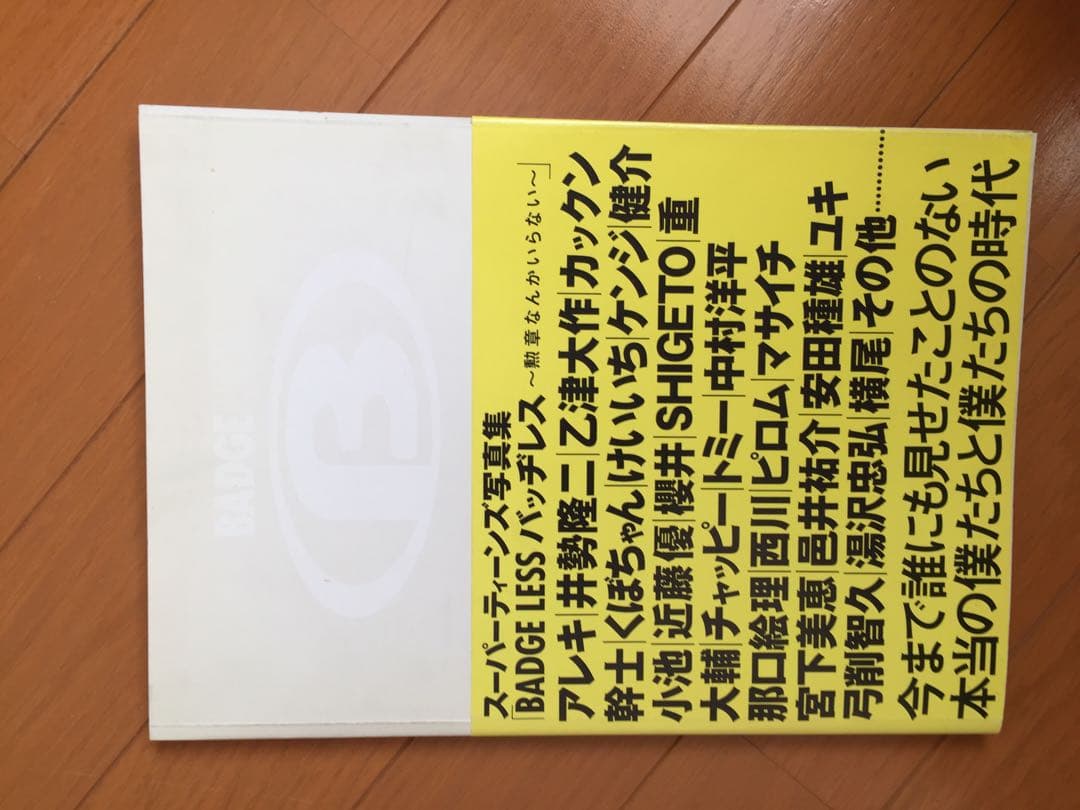 BADGE
B
スーパーティーンズ写真集
「BADGE LESS バッヂレス 〜勲章なんかいらない〜」
アレキ|井勢隆二|乙津大作|カックン
幹士|くぼちゃん|けいいち|ケンジ|健介
小池|近藤優|櫻井|SHIGETO|重
大輔|チャッピー|トミー|中村洋平
那口絵理|西川|ピロム|マサイチ
宮下美恵|邑井祐介|安田種雄|ユキ
弓削智久|湯沢忠弘|横尾|その他…………
今まで誰にも見せたことのない
本当の僕たちと僕たちの時代